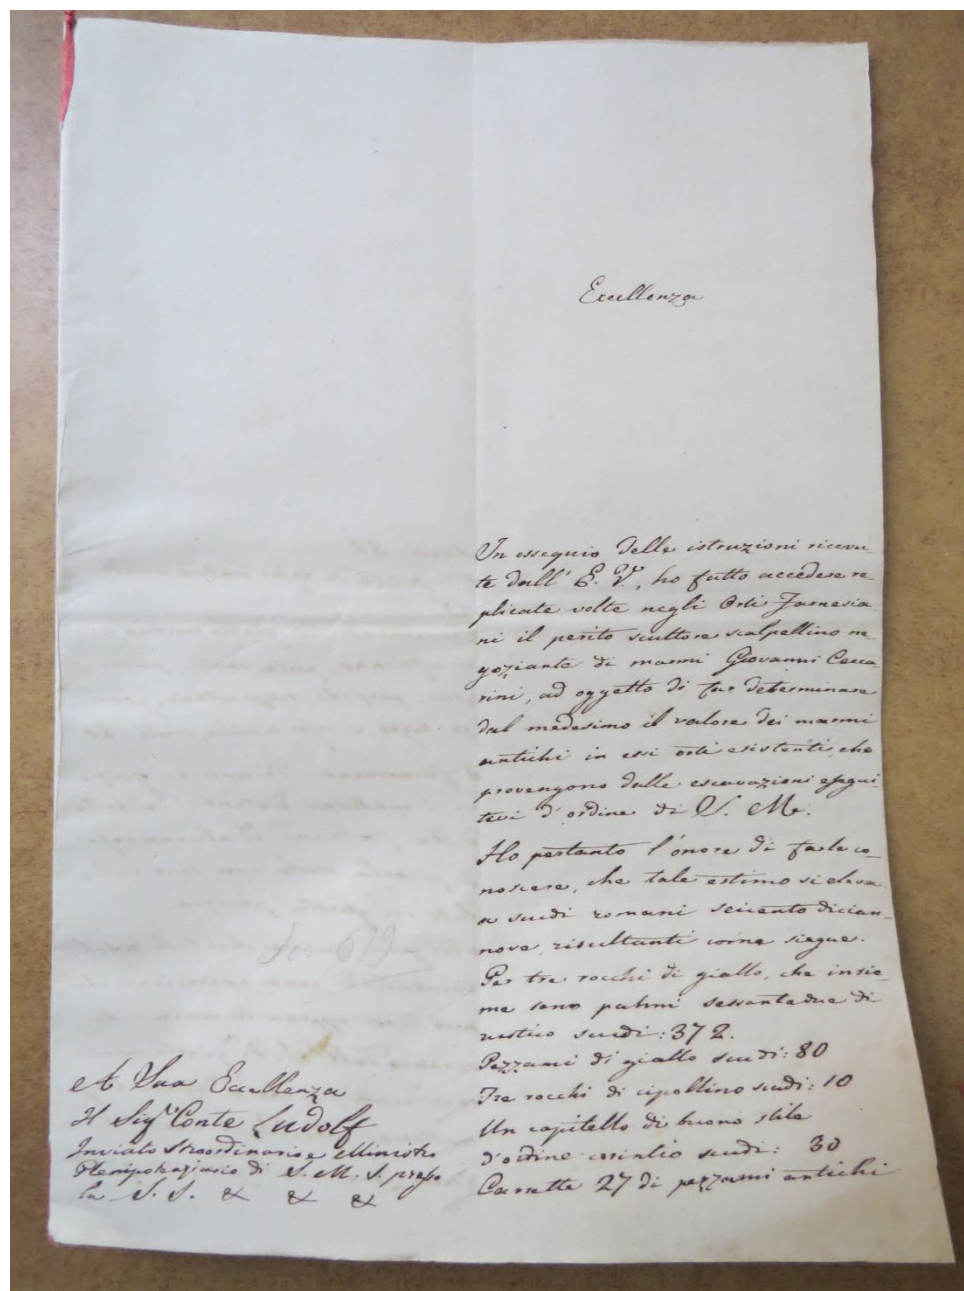 Eccellenza
In ossequio delle istruzioni ricevu-
te dall' E. V., ho fatto accedere re-
plicate volte negli Orti Farnesia
ni il perito scultore scalpellino ne
goziante di marmi Giovanni Cecca
rini, ad oggetto di far determinare
dal medesimo il valore dei marmi
antichi in essi orti esistenti, che
provengono dalle escavazioni esegui-
tevi d'ordine di S. M.
Ho pertanto l'onore di farle co-
noscere, che tale estimo si eleva
a scudi romani seicento dician-
nove, risultanti come siegue.
Per tre rocchi di giallo, che insie-
me sono palmi sessantadue di
rustico scudi: 372.
Pezzami di giallo scudi: 80
Tre rocchi di cipollino scudi: 10
Un capitello di buono stile
d'ordine corintio scudi: 30
Carrette 27 di pezzami antichi
619
A Sua Eccellenza
Il Sigr Conte Ludolf
Inviato Straordinario e Ministro
Plenipotenziario di S. M. S. presso
la S. S. & & &